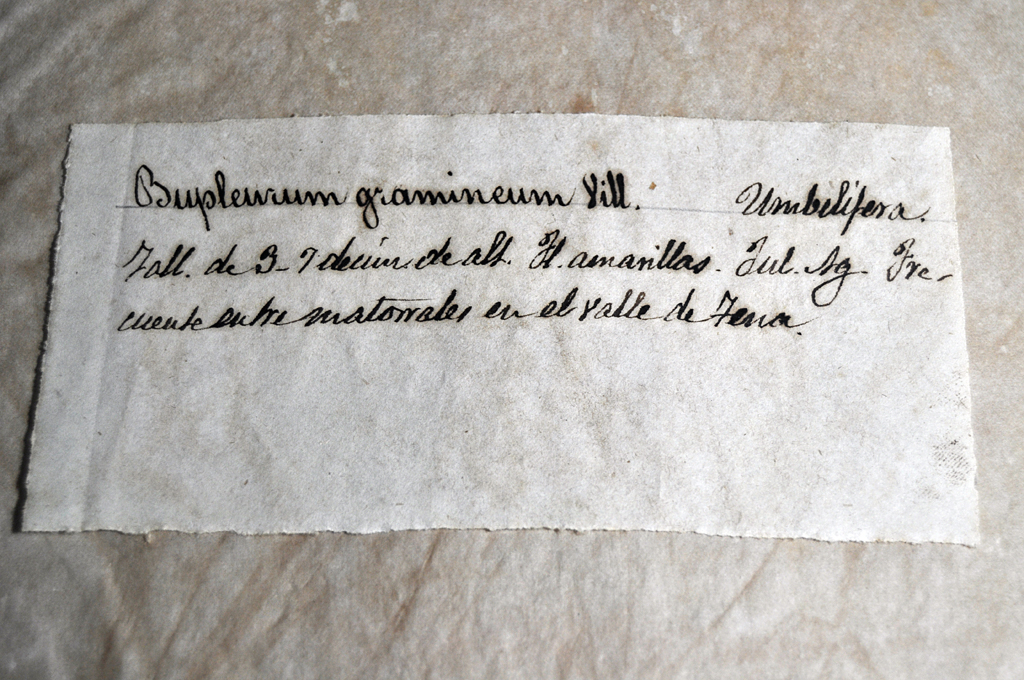 Bupleurum gramineum Vill. Umbelífera.
Tall. de 3-7 decím. de alt. Fl. amarillas. Jul. Ag. Fre-
cuente entre matorrales en el valle de Tena.